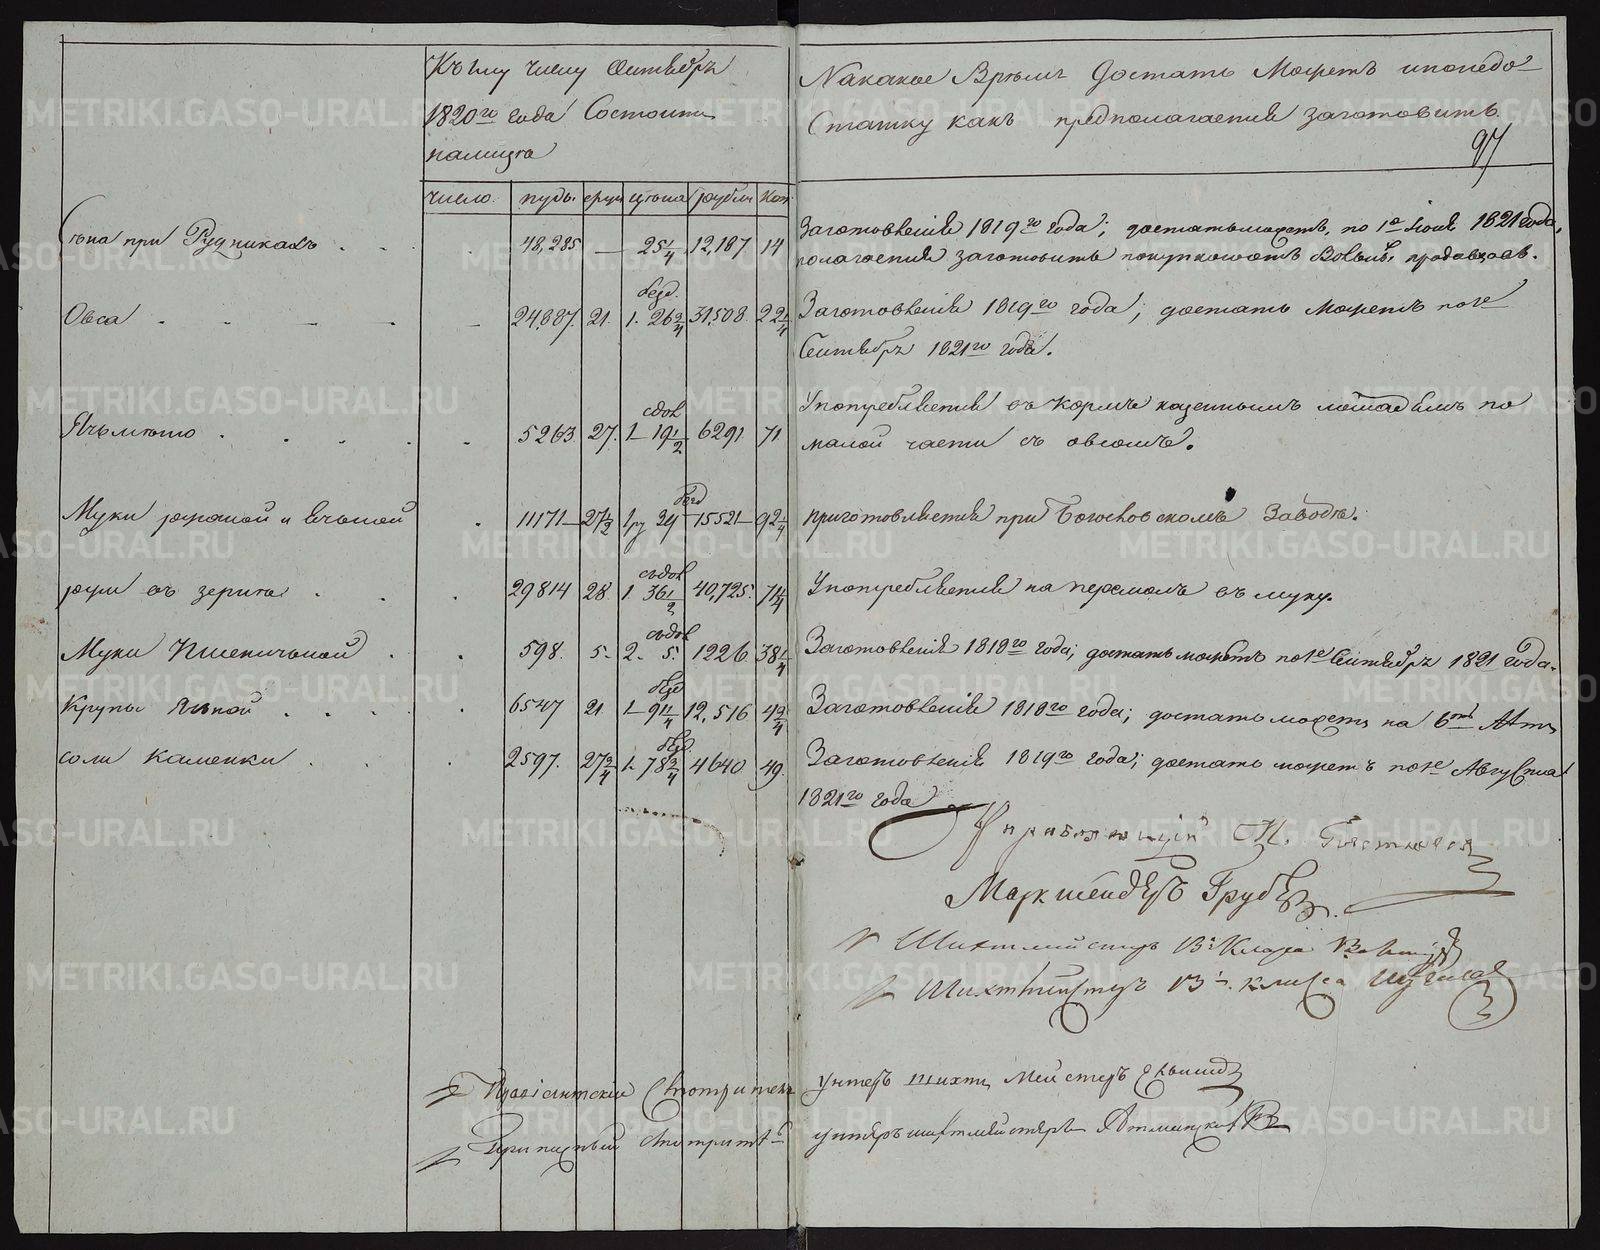 Къ 1му числу Октября
1820го года Состоитъ
налицо
На какое Время Достать Можетъ и по недо-
статку какъ предполагается заготовить
97
число. пуды. фун цѣна рубли Коп
Сѣна при Рудникахъ . . . 48,285 — 25 1/4 12,187 14
Заготовленія 1819го года; достать можетъ, по 1е Іюня 1821 года,
полагается заготовить покупкою отъ Вольныхъ продавцовъ.
Овса . . . 24,887. 21. безд. 1. 26 3/4 31,508. 22 1/4
Заготовленія 1819го года; достать Можетъ по 1е
Сентября 1821го года.
Ячъменю . . . 5263 27. сдол 1– 19 1/2 6291. 71
Употребляется въ кормъ казеннымъ лошадямъ по
малой части съ овсомъ.
Муки ржаной и ячьной . 11171– 27 1/2 1 ру 34 15521– 92 1/4
приготовляется при Богословскомъ Заводѣ.
ржи въ зернѣ . . . 29814 28 съдол 1. 36 1/2 40,725. 71 1/4
Употребляется на перемолъ въ муку.
Муки Пшеничьной . . . 598. 5– съдол 2. 5. 1226 38 1/4
Заготовленія 1819го года; достать можетъ по 1е Сентября 1821 года.
Крупы Яшной . . . . 6547 21 безд 1– 91 1/4 12,516 49 3/4
Заготовленія 1819го года; достать можетъ на 6ть лѣтъ
соли Каменки . . . 2597. 27 3/4 безд. 1. 78 3/4 4640 49.
Заготовленія 1819го года; достать можетъ по 1е Августа
1821го года
Управляющій
Маркшейдеръ Грубе
Шихтмейстеръ 13го Класса
Шихтмейстеръ 13го класса
Провіантскій Смотритель унтеръ шихтъ Мейстеръ
Припасный смотритель унтеръ шихтмейстеръ
METRIKI.GASO-URAL.RU